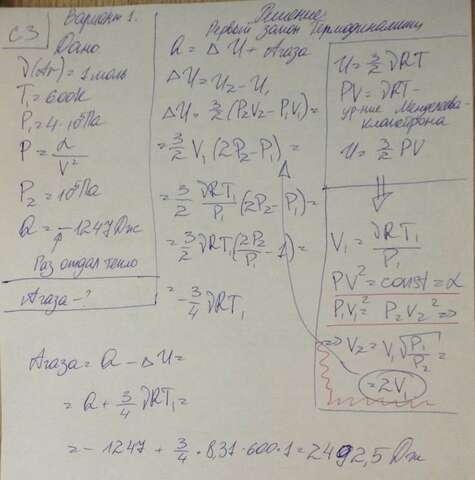 С3
Вариант 1.
Дано
ν(Ar) = 1 моль
T₁ = 600K
P₁ = 4·10⁵Па
P = α/V²
P₂ = 10⁵Па
Q = -1247 Дж
Газ отдал тепло
Aгаза - ?
Решение
Первый закон Термодинамики
Q = ΔU + Aгаза
ΔU = U₂ - U₁
ΔU = 3/2 (P₂V₂ - P₁V₁) =
= 3/2 V₁ (2P₂ - P₁) =
= 3/2 νRT₁/P₁ (2P₂ - P₁) =
= 3/2 νRT₁ (2P₂/P₁ - 1) =
= -3/4 νRT₁
U = 3/2 νRT
PV = νRT -
ур-ние Менделеева-
клапейрона
U = 3/2 PV
⇓
V₁ = νRT₁/P₁
PV² = const = α
P₁V₁² = P₂V₂² ⇒
⇒ V₂ = V₁√(P₁/P₂) =
= 2V₁
Aгаза = Q - ΔU =
= Q + 3/4 νRT₁ =
= -1247 + 3/4 · 8,31 · 600 · 1 = 2492,5 Дж